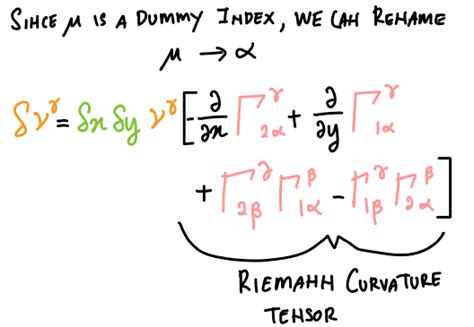 SINCE μ IS A DUMMY INDEX, WE CAN RENAME
μ → α
δν^γ = δx δy ν^γ [ -∂/∂x Γ^γ_{2α} + ∂/∂y Γ^γ_{1α}
+ Γ^γ_{2β} Γ^β_{1α} - Γ^γ_{1β} Γ^β_{2α} ]
RIEMANN CURVATURE
TENSOR